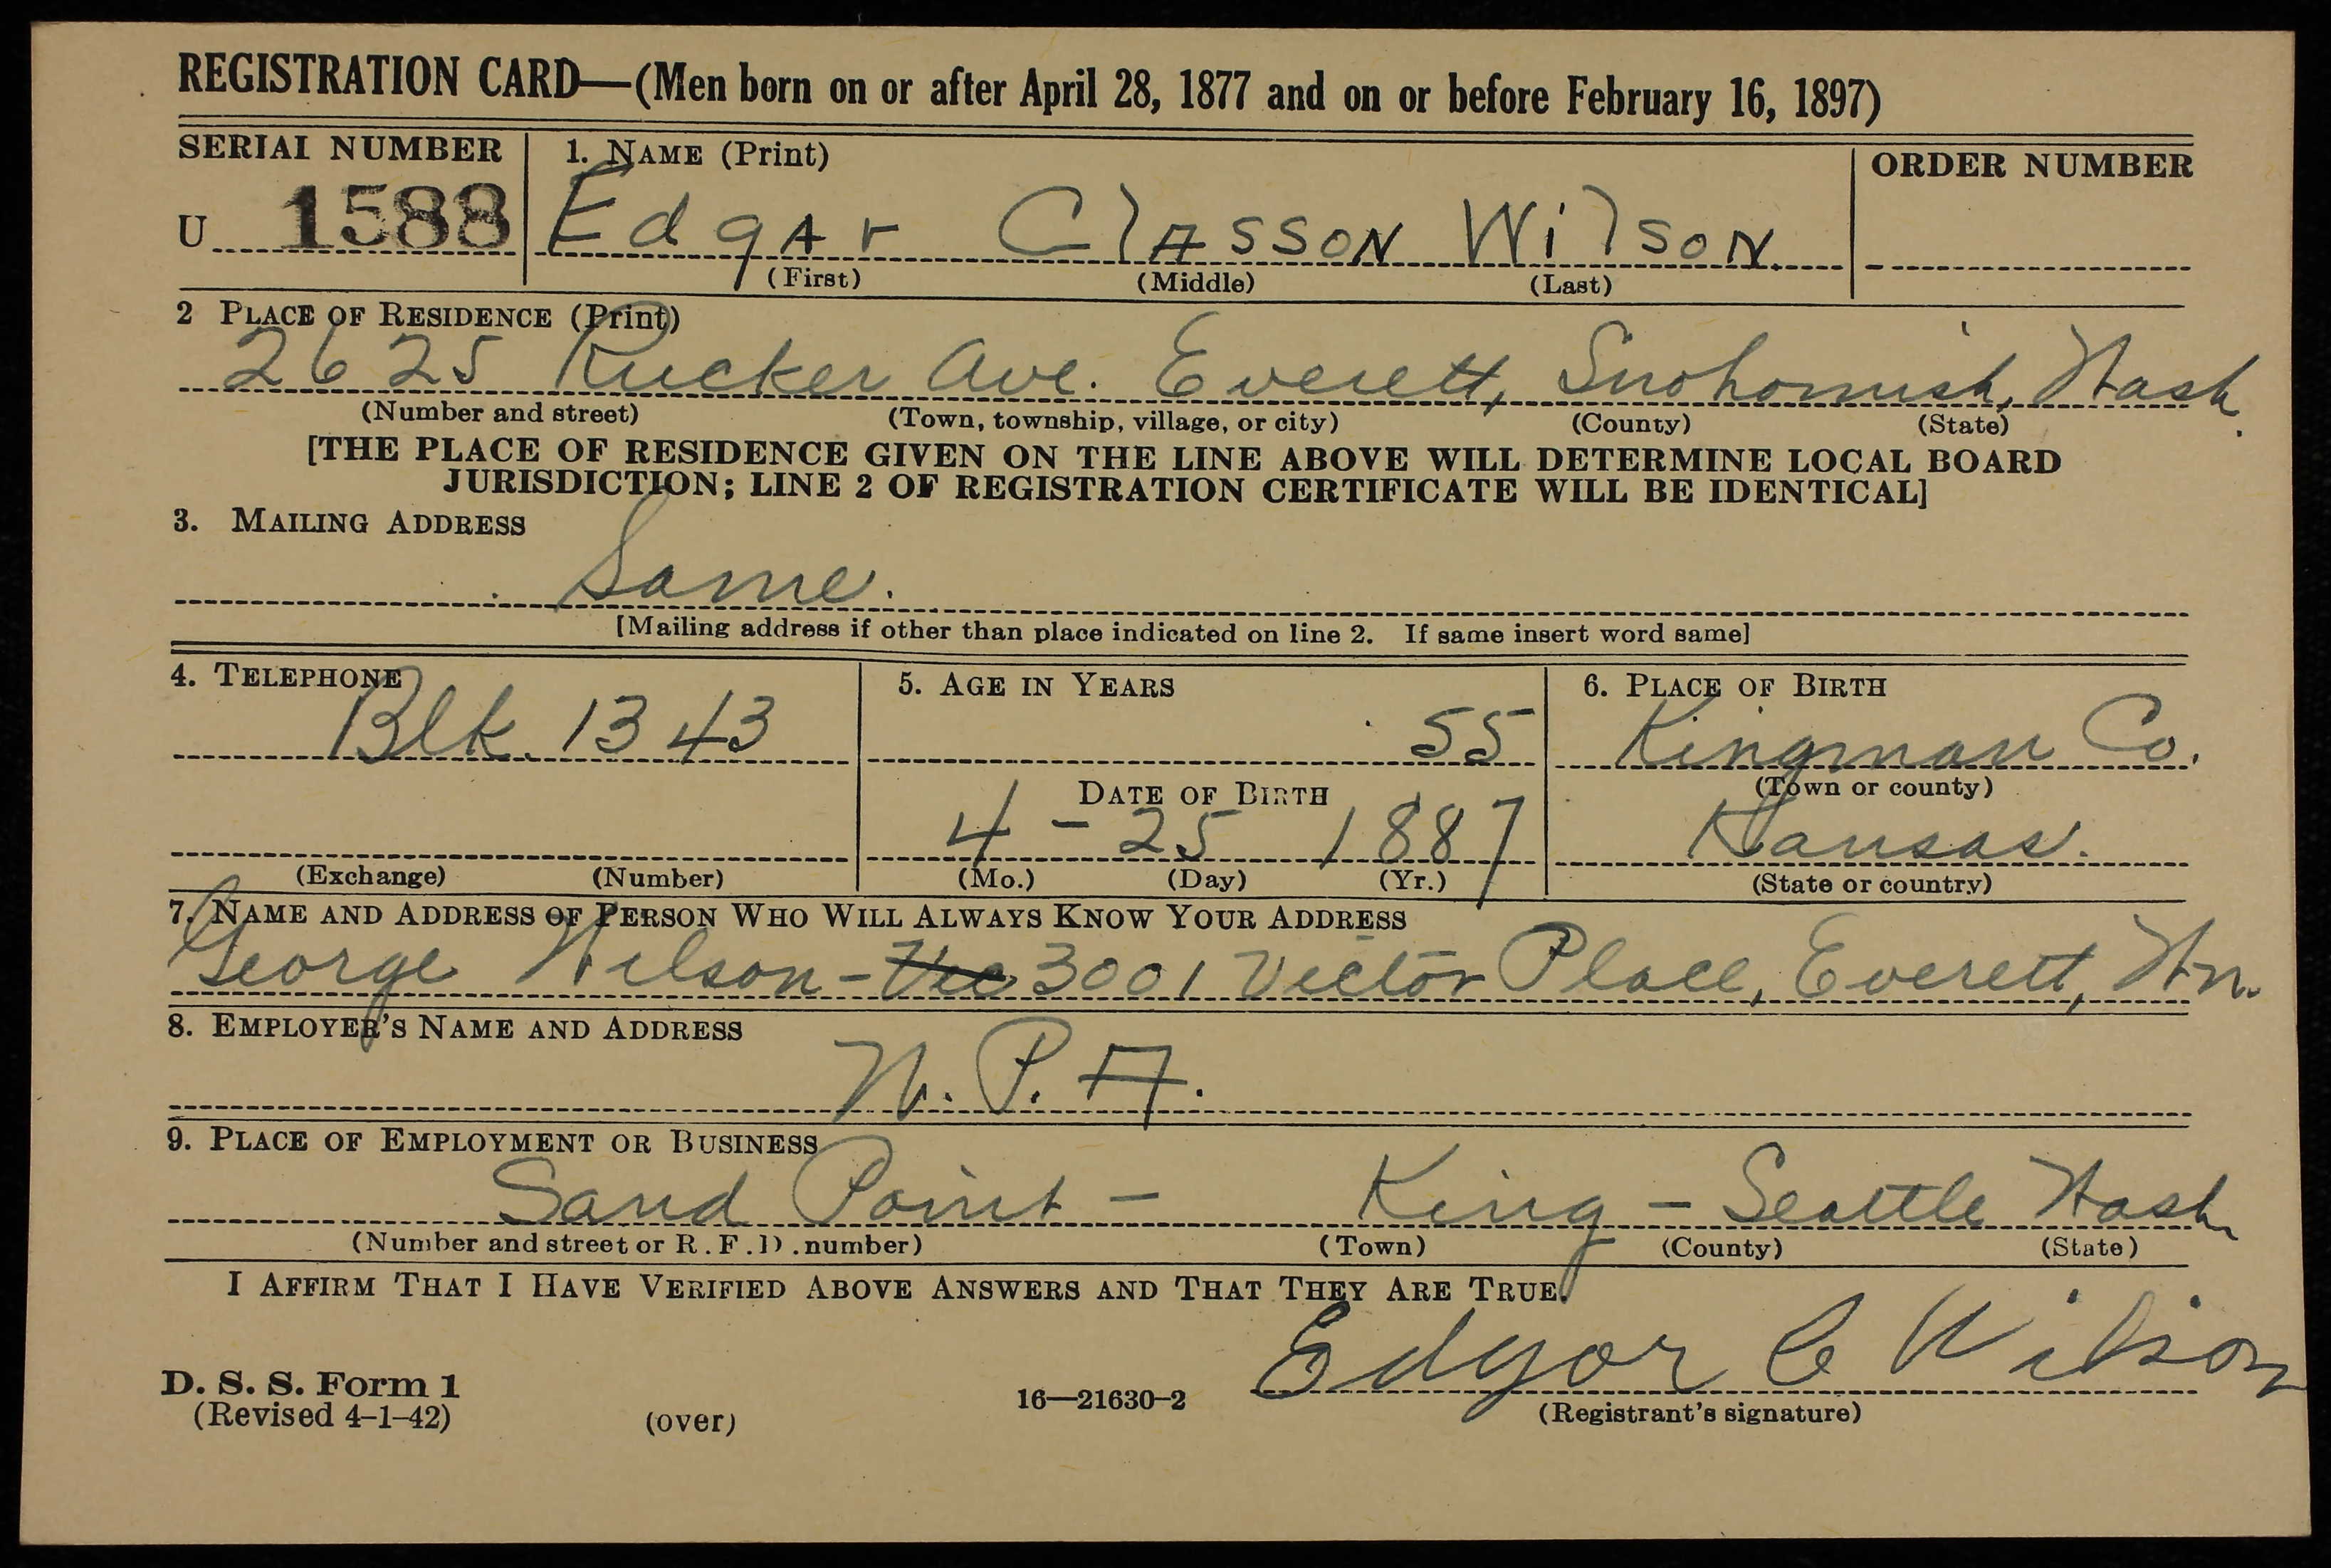 REGISTRATION CARD—(Men born on or after April 28, 1877 and on or before February 16, 1897)
SERIAL NUMBER
1. NAME (Print)
ORDER NUMBER
U 1588
Edgar Classon Wilson
(First) (Middle) (Last)
2 PLACE OF RESIDENCE (Print)
2625 Rucker Ave. Everett, Snohomish, Wash.
(Number and street) (Town, township, village, or city) (County) (State)
[THE PLACE OF RESIDENCE GIVEN ON THE LINE ABOVE WILL DETERMINE LOCAL BOARD
JURISDICTION; LINE 2 OF REGISTRATION CERTIFICATE WILL BE IDENTICAL]
3. MAILING ADDRESS
Same.
[Mailing address if other than place indicated on line 2. If same insert word same]
4. TELEPHONE
5. AGE IN YEARS
6. PLACE OF BIRTH
Blk. 1343
55
Kingman Co.
DATE OF BIRTH
(Town or county)
4 - 25 1887
Kansas.
(Exchange) (Number)
(Mo.) (Day) (Yr.)
(State or country)
7. NAME AND ADDRESS OF PERSON WHO WILL ALWAYS KNOW YOUR ADDRESS
George Wilson - 3001 Victor Place, Everett, Wn.
8. EMPLOYER'S NAME AND ADDRESS
W. P. A.
9. PLACE OF EMPLOYMENT OR BUSINESS
Sand Point - King - Seattle Wash
(Number and street or R. F. D. number) (Town) (County) (State)
I AFFIRM THAT I HAVE VERIFIED ABOVE ANSWERS AND THAT THEY ARE TRUE.
Edgar C Wilson
D. S. S. Form 1
(Revised 4-1-42)
(over)
16—21630-2
(Registrant's signature)